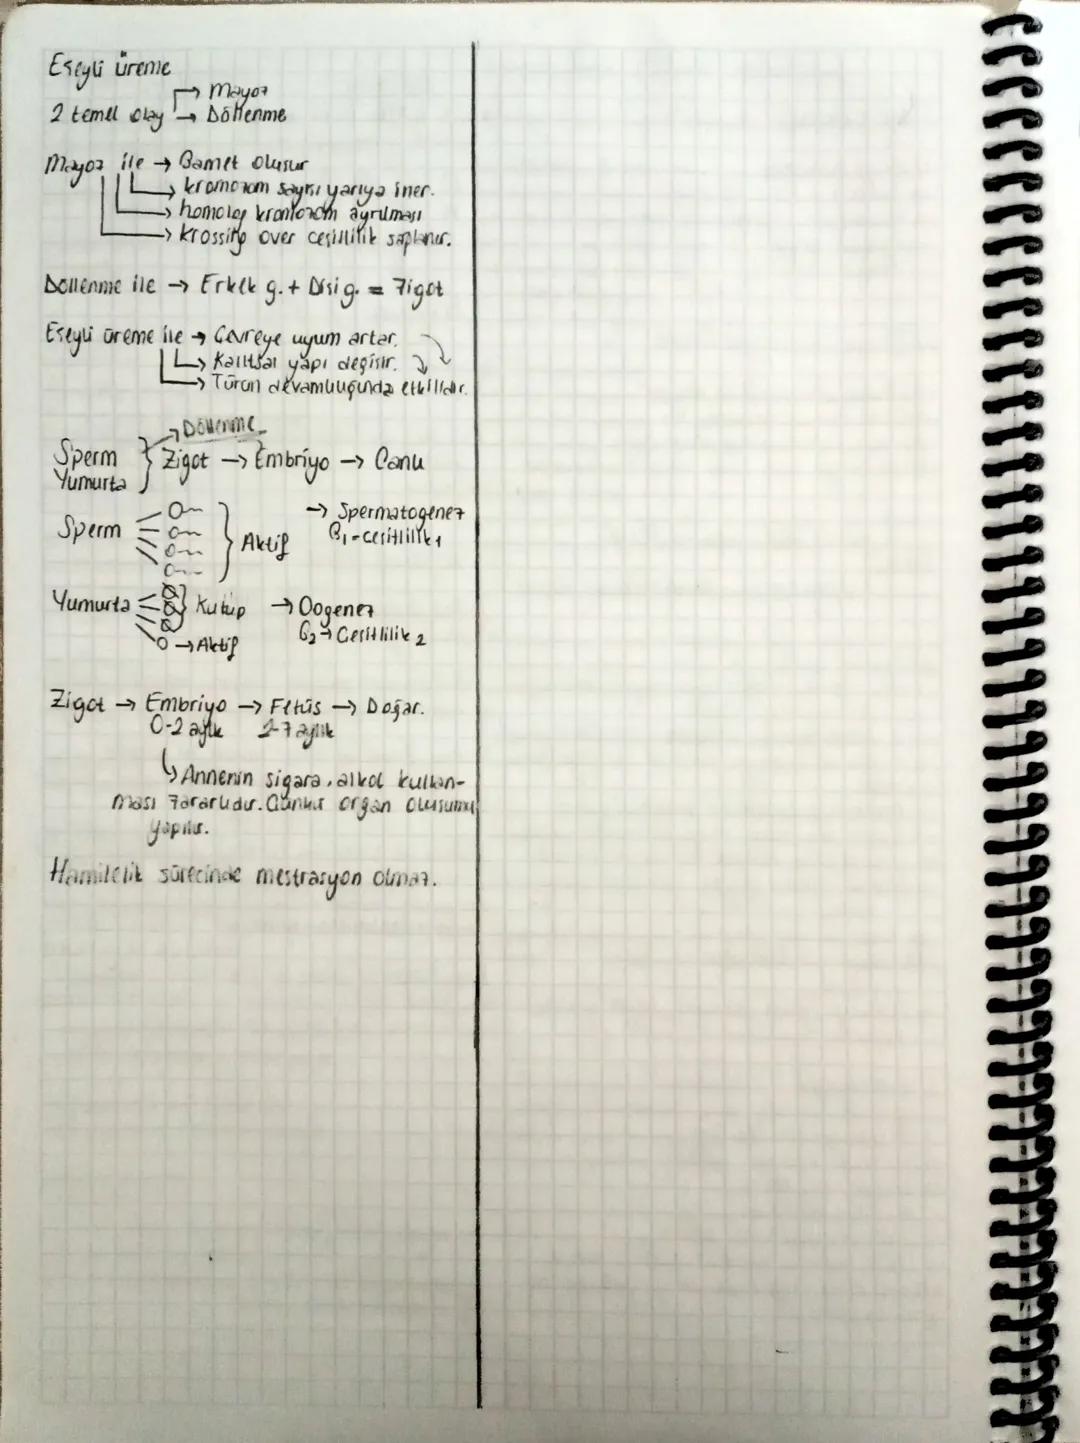 Eşeyli üreme
2 temel olay → Mayoz
→ Döllenme
Mayoz ile → Gamet oluşur
→ kromozom sayısı yarıya iner.
→ homolog kromozom ayrılması
→ krossing over çeşitlilik sağlanır.
Döllenme ile → Erkek g. + Dişi g. = Zigot
Eşeyli üreme ile → Çevreye uyum artar.
→ Kalıtsal yapı değişir.
→ Türün devamlılığında etkilidir.
→ Döllenme
Sperm
Yumurta } Zigot → Embriyo → Canlı
Sperm } Aktif → Spermatogenez
G1-çeşitlilik 1
Yumurta } Kutup → Oogenez
→ Aktif G2 → Çeşitlilik 2
Zigot → Embriyo → Fetüs → Doğar.
0-2 aylık 2-7 aylık
↳ Annenin sigara, alkol kullan-
ması zararlıdır. Çünkü organ oluşumu
yapılır.
Hamilelik sürecinde mestrasyon olmaz.